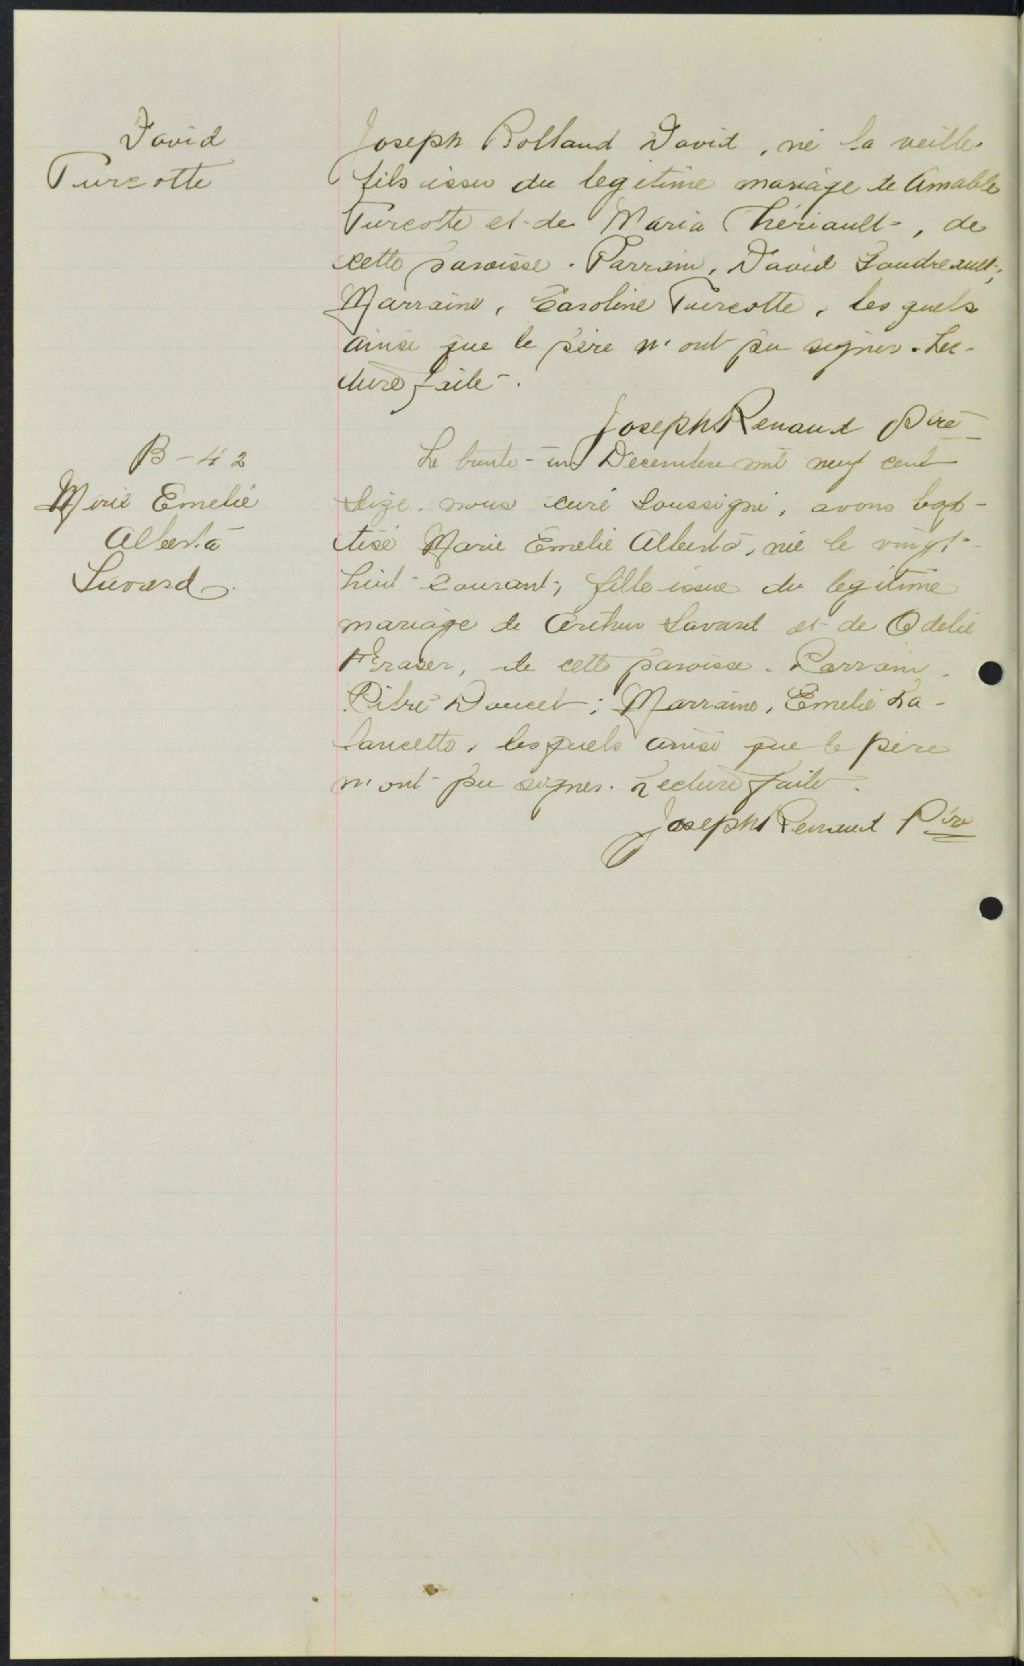 David
Turcotte
Joseph Rolland David, né la veille
fils issu du legitime mariage de Amable
Turcotte et de Maria Thériault, de
cette paroisse. Parrain, David Gaudreault;
Marraine, Caroline Turcotte, les quels
ainsi que le père n'ont pu signer. Lec-
ture faite.
Joseph Renaud Ptre
B-42
Marie Emelie
Alberta
Savard
Le trente-un Decembre mil neuf cent
seize, nous curé soussigné, avons bap-
tisé Marie Emelie Alberta, née le vingt-
huit courant; fille issue du legitime
mariage de Arthur Savard et de Odelie
Fraser, de cette paroisse. Parrain,
Pitre Doucet; Marraine, Emelie La-
lancette, lesquels ainsi que le père
n'ont pu signer. Lecture faite.
Joseph Renaud Ptre